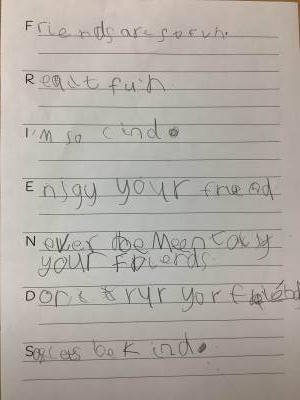 Friends are so fun.
Realt fuin
I'm so cind.
Enjgy your friend
Never be Meen to y
your Friends.
Dont your friends
be kind.